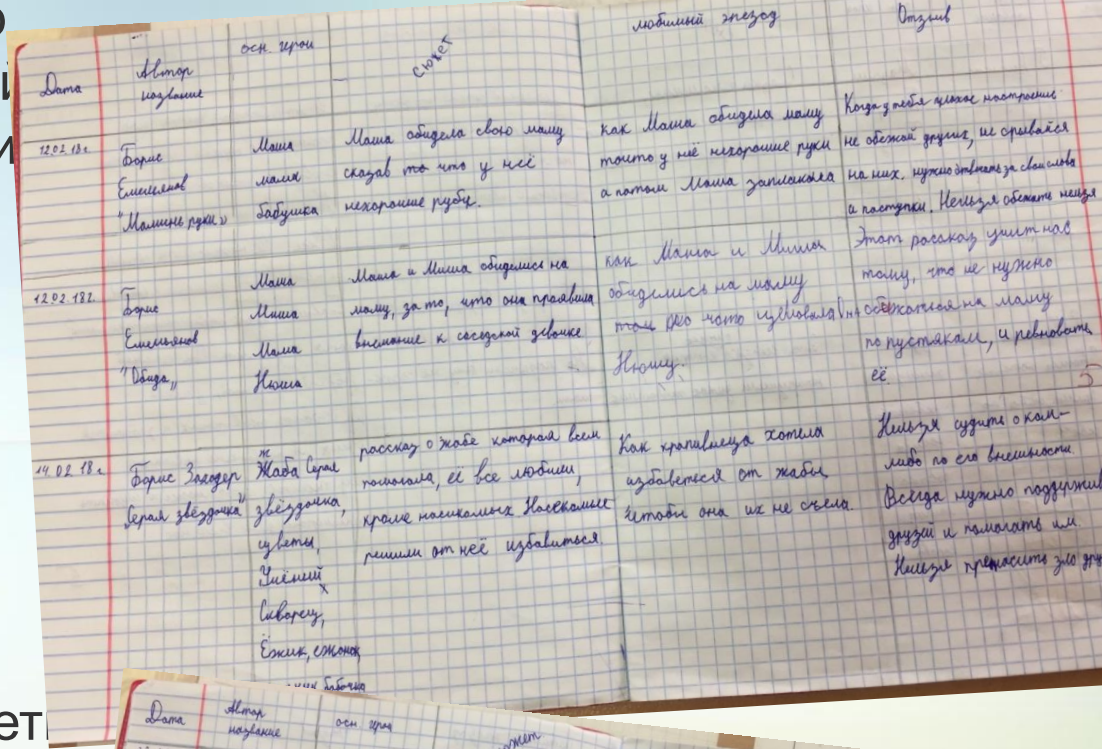 Дата
Автор
название
осн. герои
сюжет
любимый эпизод
Отзыв
12.02.18г.
Борис
Емельянов
"Мамины руки"
Маша
мама
бабушка
Маша обидела свою маму
сказав то что у неё
нехорошие рубц.
как Маша обидела маму
тоито у неё нехорошие руки
а потом Маша заплакала
Когда у тебя плохое настроение
не обежай других, не срывайся
на них. нужно отвечать за свои слова
и поступки. Нельзя обежать нельзя
12.02.18г.
Борис
Емельянов
"Обида"
Маша
Миша
Мама
Нюша
Маша и Миша обиделись на
маму, за то, что она проявила
внемание к соседской девочке
как Маша и Миша
обиделись на маму
что целовала
Нюшу.
Этот рассказ учит нас
тому, что не нужно
обежаться на маму
по пустякам, и ревновать
её.
5
14.02.18г.
Борис Заходер
"Серая звёздочка"
ж
Жаба Серая
звёздочка,
цветы,
Учёный
Скворец,
Ёжик, ежонок
бабочка
рассказ о жабе которая всем
помогала, её все любили,
кроме насикомых Насекомые
решили от неё избавиться.
Как крапивница хотела
избаветься от жабы
чтобы она их не съела.
Нельзя судить о ком-
либо по его внешности.
Всегда нужно поддержив
друзей и помогать им.
Нельзя зло
Дата
Автор
название
осн. герои